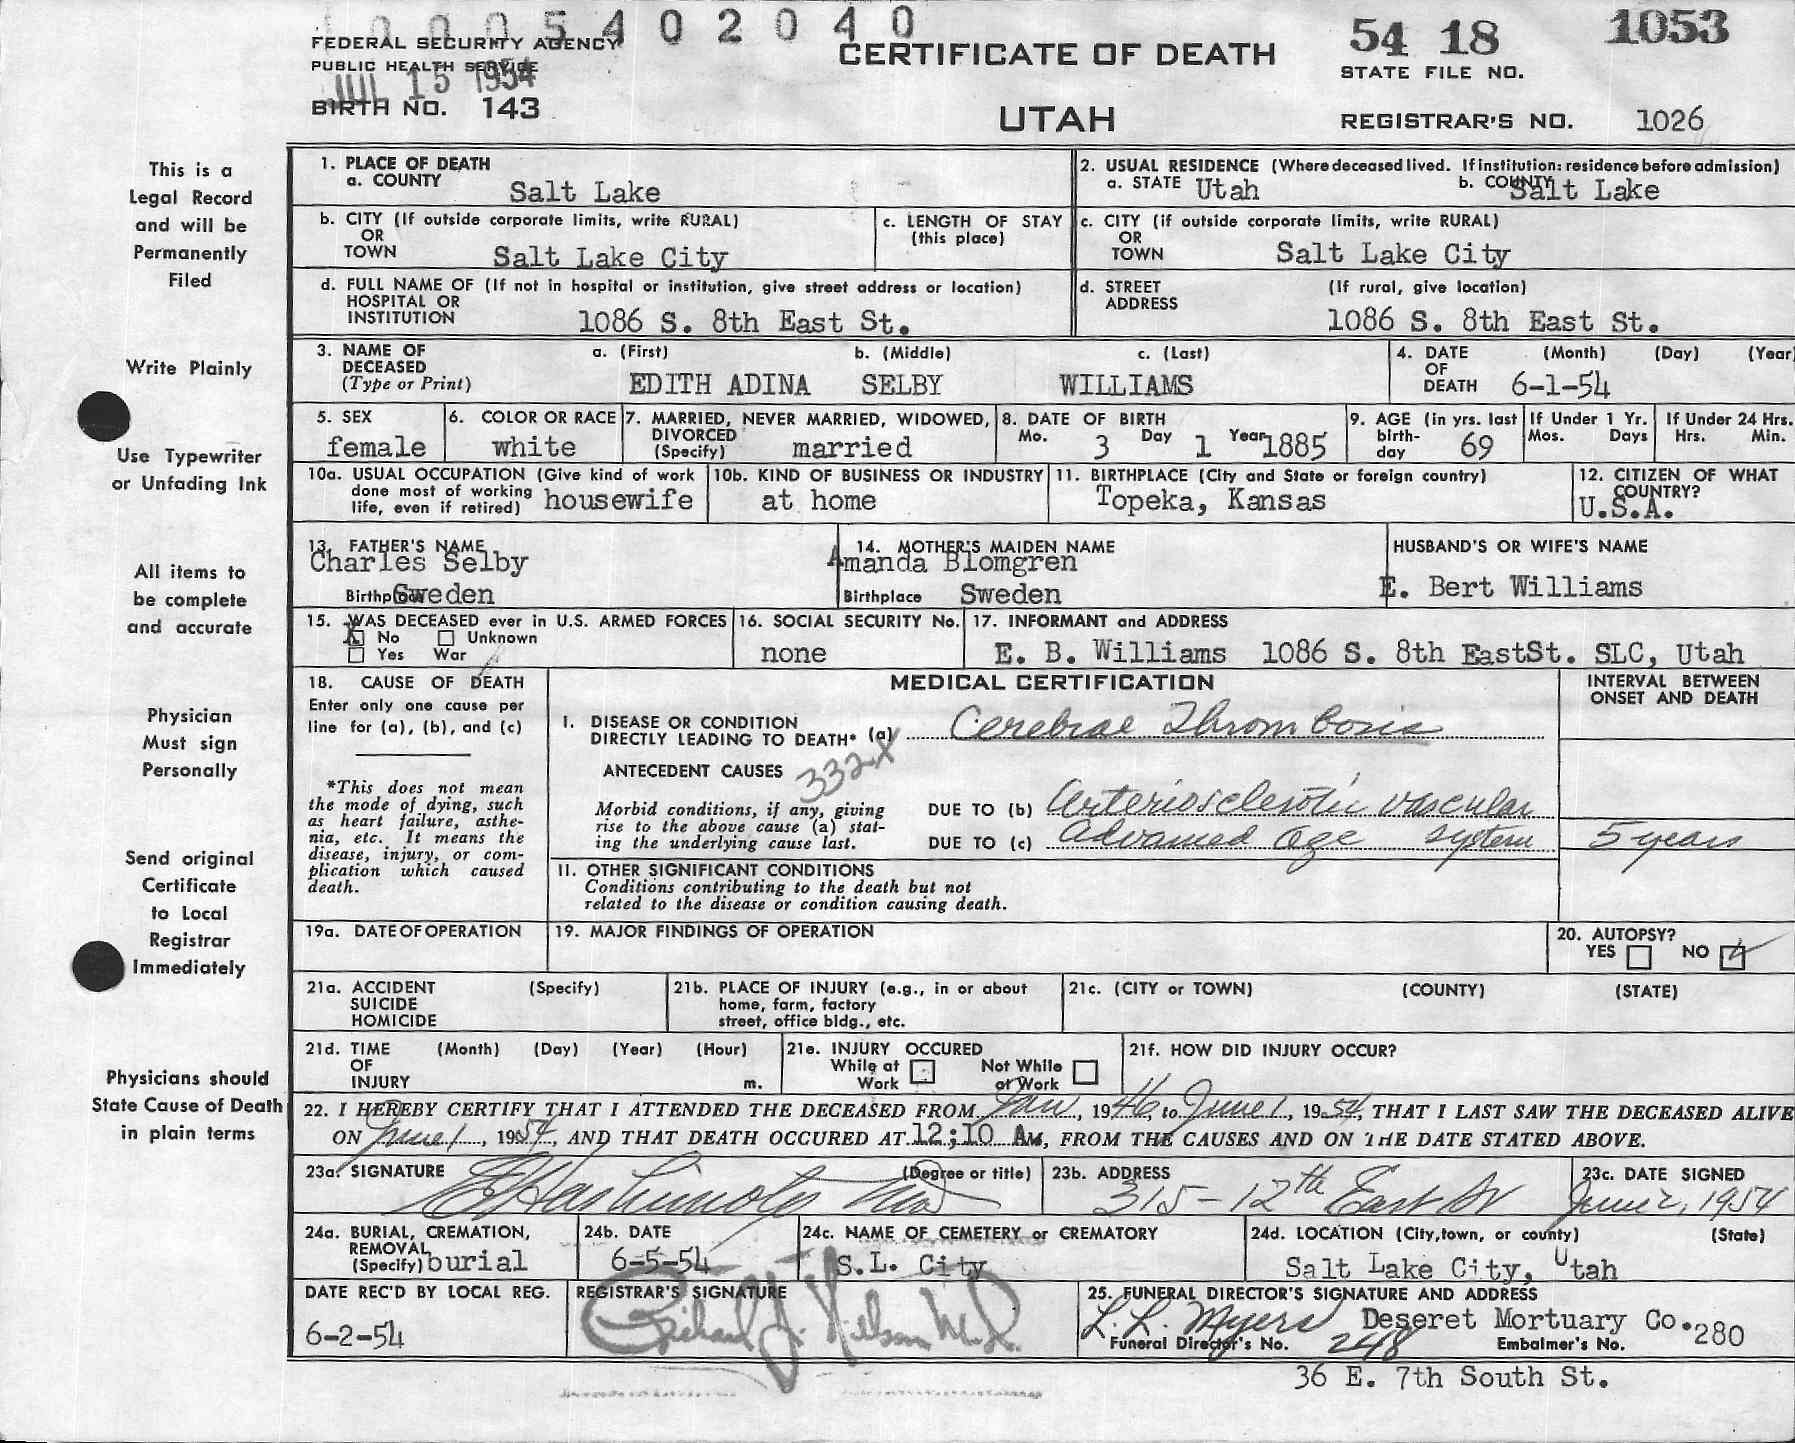 10005402040
FEDERAL SECURITY AGENCY
PUBLIC HEALTH SERVICE
JUL 15 1954
BIRTH NO. 143
CERTIFICATE OF DEATH
UTAH
54 18 1053
STATE FILE NO.
REGISTRAR'S NO. 1026
This is a
Legal Record
and will be
Permanently
Filed
Write Plainly
Use Typewriter
or Unfading Ink
All items to
be complete
and accurate
Physician
Must sign
Personally
Send original
Certificate
to Local
Registrar
Immediately
Physicians should
State Cause of Death
in plain terms
1. PLACE OF DEATH
a. COUNTY Salt Lake
2. USUAL RESIDENCE (Where deceased lived. If institution: residence before admission)
a. STATE Utah b. COUNTY Salt Lake
b. CITY (If outside corporate limits, write RURAL)
OR
TOWN Salt Lake City
c. LENGTH OF STAY
(this place)
c. CITY (if outside corporate limits, write RURAL)
OR
TOWN Salt Lake City
d. FULL NAME OF (If not in hospital or institution, give street address or location)
HOSPITAL OR
INSTITUTION 1086 S. 8th East St.
d. STREET (If rural, give location)
ADDRESS
1086 S. 8th East St.
3. NAME OF a. (First) b. (Middle) c. (Last)
DECEASED
(Type or Print) EDITH ADINA SELBY WILLIAMS
4. DATE (Month) (Day) (Year)
OF
DEATH 6-1-54
5. SEX
female
6. COLOR OR RACE
white
7. MARRIED, NEVER MARRIED, WIDOWED,
DIVORCED
(Specify) married
8. DATE OF BIRTH
Mo. 3 Day 1 Year 1885
9. AGE (in yrs. last
birth-
day 69
If Under 1 Yr.
Mos. Days
If Under 24 Hrs.
Hrs. Min.
10a. USUAL OCCUPATION (Give kind of work
done most of working
life, even if retired) housewife
10b. KIND OF BUSINESS OR INDUSTRY
at home
11. BIRTHPLACE (City and State or foreign country)
Topeka, Kansas
12. CITIZEN OF WHAT
COUNTRY?
U.S.A.
13. FATHER'S NAME
Charles Selby
Birthplace Sweden
14. MOTHER'S MAIDEN NAME
Amanda Blomgren
Birthplace Sweden
HUSBAND'S OR WIFE'S NAME
E. Bert Williams
15. WAS DECEASED ever in U.S. ARMED FORCES
X No Unknown
Yes War
16. SOCIAL SECURITY No.
none
17. INFORMANT and ADDRESS
E. B. Williams 1086 S. 8th EastSt. SLC, Utah
18. CAUSE OF DEATH
Enter only one cause per
line for (a), (b), and (c)
*This does not mean
the mode of dying, such
as heart failure, asthe-
nia, etc. It means the
disease, injury, or com-
plication which caused
death.
MEDICAL CERTIFICATION
INTERVAL BETWEEN
ONSET AND DEATH
I. DISEASE OR CONDITION
DIRECTLY LEADING TO DEATH* (a) Cerebral Thrombosis
ANTECEDENT CAUSES 332X
Morbid conditions, if any, giving
rise to the above cause (a) stat-
ing the underlying cause last.
DUE TO (b) Arteriosclerotic vascular
DUE TO (c) Advanced Age system 5 years
II. OTHER SIGNIFICANT CONDITIONS
Conditions contributing to the death but not
related to the disease or condition causing death.
19a. DATE OF OPERATION
19. MAJOR FINDINGS OF OPERATION
20. AUTOPSY?
YES NO
21a. ACCIDENT (Specify)
SUICIDE
HOMICIDE
21b. PLACE OF INJURY (e.g., in or about
home, farm, factory
street, office bldg., etc.
21c. (CITY or TOWN) (COUNTY) (STATE)
21d. TIME (Month) (Day) (Year) (Hour)
OF
INJURY m.
21e. INJURY OCCURED
While at Not While
Work at Work
21f. HOW DID INJURY OCCUR?
22. I HEREBY CERTIFY THAT I ATTENDED THE DECEASED FROM Jan, 1946, to June 1, 1954, THAT I LAST SAW THE DECEASED ALIVE
ON June 1, 1954, AND THAT DEATH OCCURED AT 12:10 AM, FROM THE CAUSES AND ON THE DATE STATED ABOVE.
23a. SIGNATURE (Degree or title)
E Hashimoto MD
23b. ADDRESS
315-12th East St
23c. DATE SIGNED
June 2, 1954
24a. BURIAL, CREMATION,
REMOVAL
(Specify) burial
24b. DATE
6-5-54
24c. NAME OF CEMETERY or CREMATORY
S.L. City
24d. LOCATION (City, town, or county) (State)
Salt Lake City, Utah
DATE REC'D BY LOCAL REG.
6-2-54
REGISTRAR'S SIGNATURE
Richard J. Nelson M.D.
25. FUNERAL DIRECTOR'S SIGNATURE AND ADDRESS
L. L. Myers Deseret Mortuary Co. 280
Funeral Director's No. 248 Embalmer's No.
36 E. 7th South St.